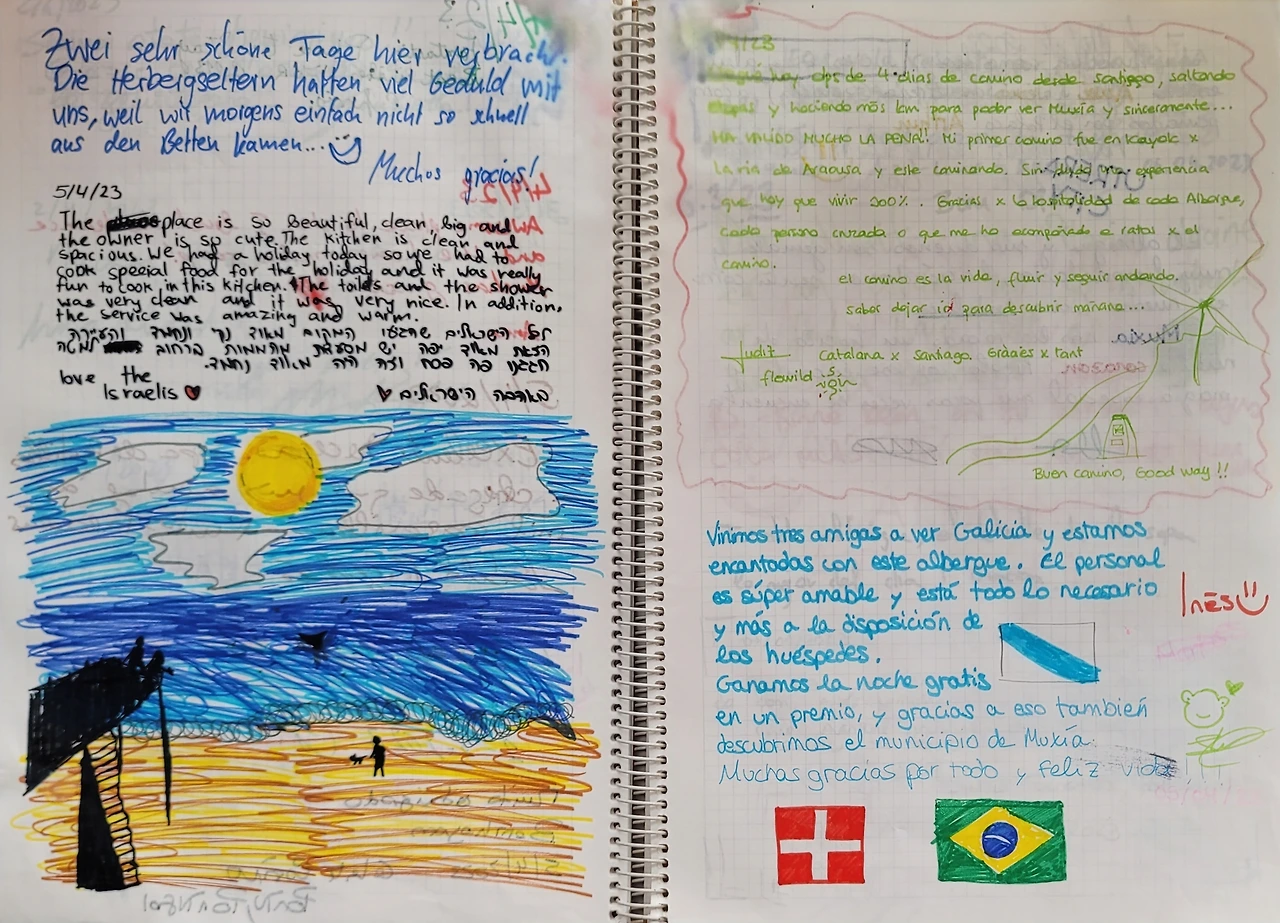 Zwei sehr schöne Tage hier verbracht.
Die Herbergseltern hatten viel Geduld mit
uns, weil wir morgens einfach nicht so schnell
aus den Betten kamen...
Muchos gracias!
5/4/23
The place is so Beautiful, clean, big and
the owner is so cute. The kitchen is clean and
spacious. We had a holiday today so we had to
cook special food for the holiday and it was really
fun to cook in this kitchen. The toilets and the shower
was very clean and it was very nice. In addition,
the service was amazing and warm.
לכל הישראלים שהגיעו המקום מאוד נקי ונחמד והעיירה
הזאת מאוד יפה יש מסעדות מהממות ברחוב למטה
חגגנו פה פסח וזה היה מאוד נחמד.
love the
Israelis ♥
הישראלים ♥
/23
hoy dps de 4 dias de camino desde Santiago, saltando
etapas y haciendo más km para poder ver Muxía y sinceramente...
HA VALIDO MUCHO LA PENA!! Mi primer camino fue en kayak x
la ria de Araousa y este caminando. Sin duda una experiencia
que hay que vivir 200%. Gracias x la hospitalidad de cada Albergue,
cada persona cruzada o que me ha acompañado a ratos x el
camino.
el camino es la vida, fluir y seguir andando,
saber dejar ir para descubrir mañana...
Muxia
Judit
Catalana x Santiago. Gràcies x tant
flowild
Buen camino, Good way!!
Vinimos tres amigas a ver Galicia y estamos
encantadas con este albergue. El personal
es súper amable y está todo lo necesario
y más a la disposición de
los huéspedes.
Ganamos la noche gratis
en un premio, y gracias a eso también
descubrimos el municipio de Muxía.
Muchas gracias por todo y feliz vida!!!
Inés